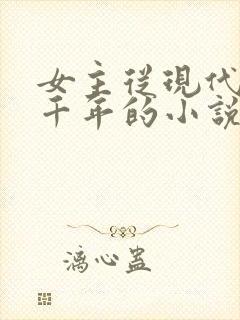 女主從現代
千年的小說
漓心蠱